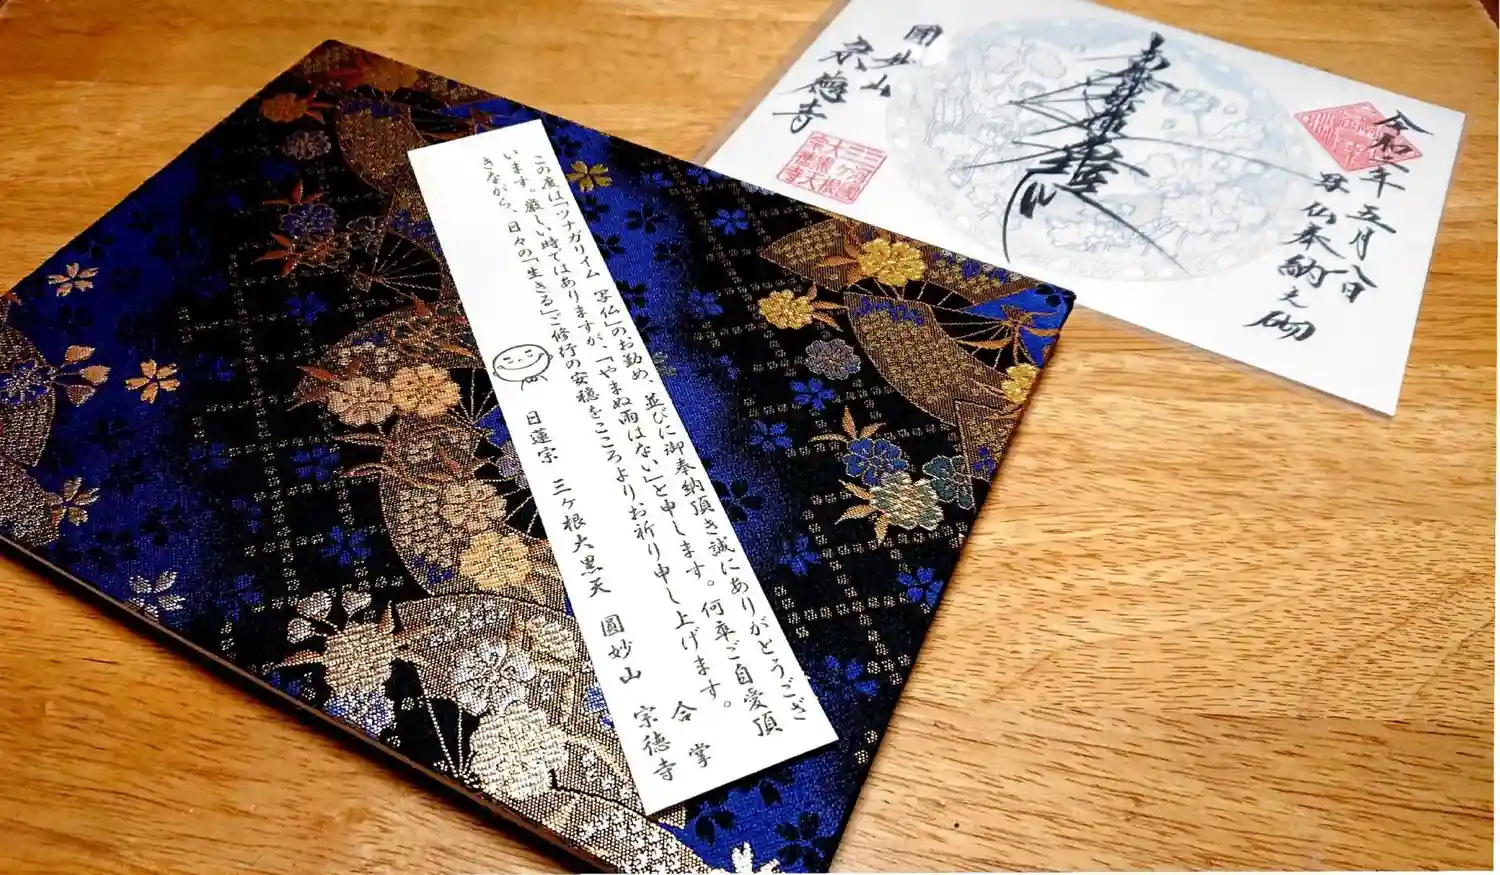 この度は「ツナガリイム 写仏」のお勤め、並びに御奉納頂き誠にありがとうござ
います。厳しい時ではありますが、「やまぬ雨はない」と申します。何卒ご自愛頂
きながら、日々の「生きる」ご修行の安穏をこころよりお祈り申し上げます。
合掌
日蓮宗 三ヶ根大黒天 圓妙山 宗徳寺
令和二年五月八日
写仏奉納之砌
圓妙山
宗徳寺